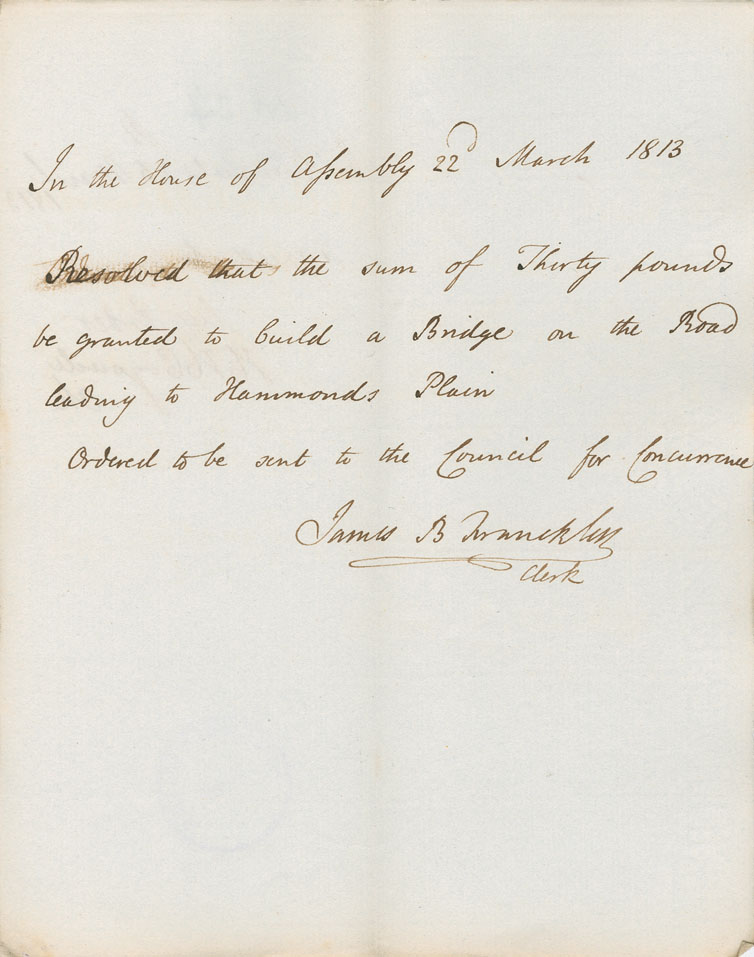 In the House of Assembly 22d March 1813
Resolved that the sum of Thirty pounds
be granted to build a Bridge on the Road
leading to Hammonds Plain
Ordered to be sent to the Council for Concurrence
James B Franckling
Clerk